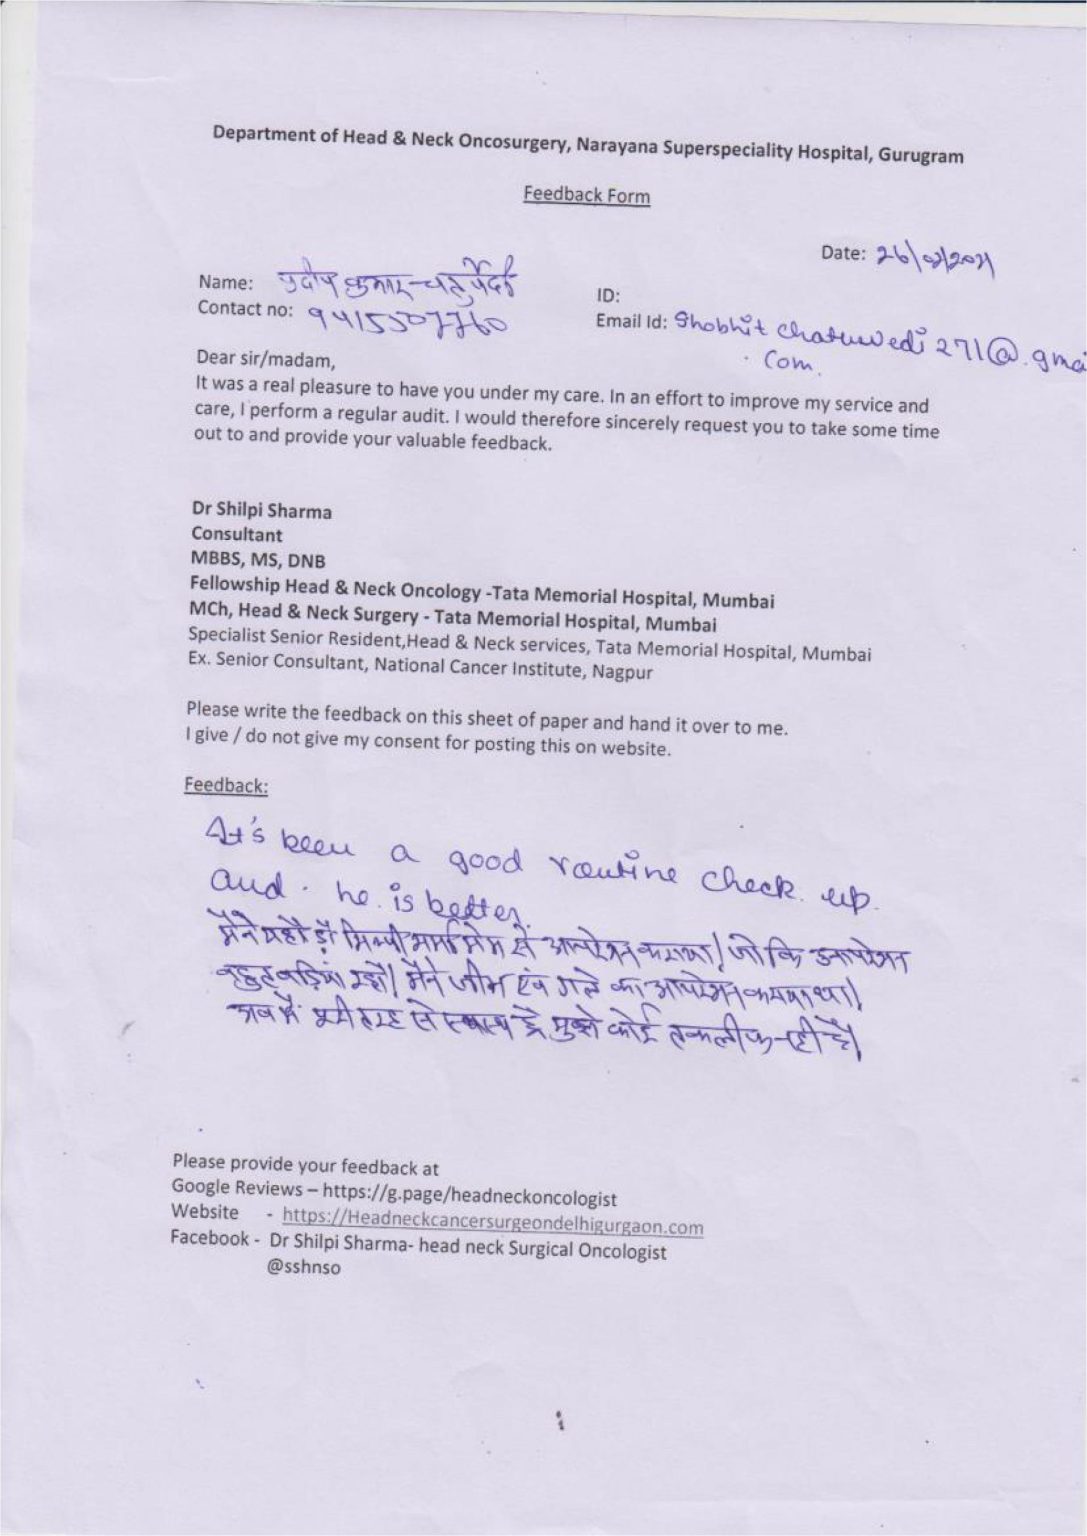 Department of Head & Neck Oncosurgery, Narayana Superspeciality Hospital, Gurugram
Feedback Form
Date: 26/02/2021
Name: प्रदीप कुमार चतुर्वेदी
ID:
Contact no: 9415507760
Email Id: Shobhit chaturvedi 271@.gmai
.com.
Dear sir/madam,
It was a real pleasure to have you under my care. In an effort to improve my service and
care, I perform a regular audit. I would therefore sincerely request you to take some time
out to and provide your valuable feedback.
Dr Shilpi Sharma
Consultant
MBBS, MS, DNB
Fellowship Head & Neck Oncology -Tata Memorial Hospital, Mumbai
MCh, Head & Neck Surgery - Tata Memorial Hospital, Mumbai
Specialist Senior Resident,Head & Neck services, Tata Memorial Hospital, Mumbai
Ex. Senior Consultant, National Cancer Institute, Nagpur
Please write the feedback on this sheet of paper and hand it over to me.
I give / do not give my consent for posting this on website.
Feedback:
It's been a good routine check up.
and . he is better.
मैने यहाँ डॉ शिल्पी शर्मा मेम से आपरेशन कराया। जो कि आपरेशन
बहुत बढ़िया रहा। मैने जीभ एवं गले का आपरेशन कराया था।
अब मैं पूरी तरह से स्वास्थ हूँ मुझे कोई तकलीफ नही है।
Please provide your feedback at
Google Reviews – https://g.page/headneckoncologist
Website - https://Headneckcancersurgeondelhigurgaon.com
Facebook - Dr Shilpi Sharma- head neck Surgical Oncologist
@sshnso